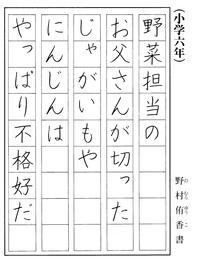 （小学六年）
野村侑香書
のむらゆうこ
野菜担当の
お父さんが切った
じゃがいもや
にんじんは
やっぱり不格好だ